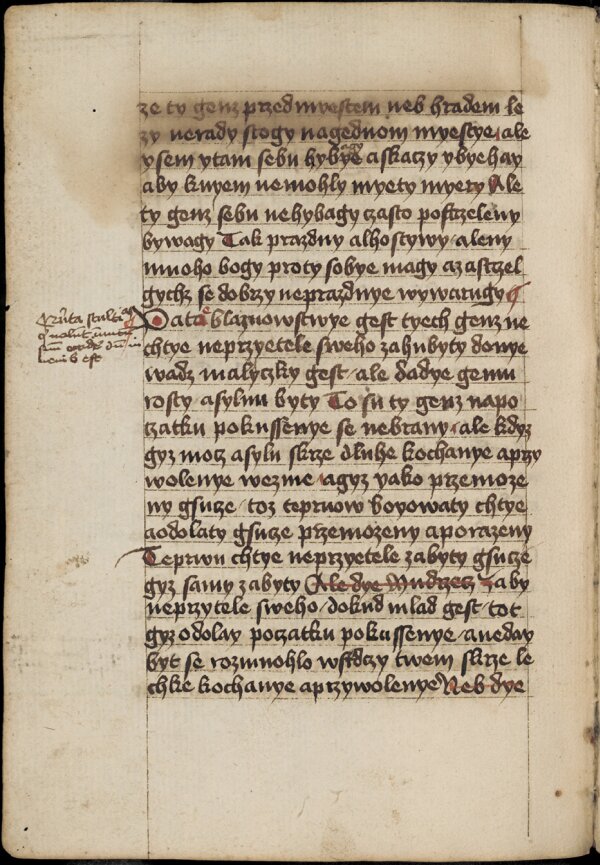 ze ty genz przed myestem neb hradem le
zy nerady stogy nagednom myestye ale
vsem ytam sebu hybye askaczy vbyehay
aby knyem nemohly myety myery Ale
ty genz sebu nehybagy czasto postrzeleny
bywagy Tak prazdny alhostywy aleny
mnoho bogy proty sobye magy azastrzel
gychz se dobrzy neprazdnye wywarugy
Pata blaznowstwye gest tyech genz ne
chtye neprzyetele sweho zahubyty donye
wadz malyczky gest ale dadye gemu
rosty asylnu byty To su ty genz napo
czatku pokussenye se nebrany ale kdyz
gyz motz asylu skrze dluhe kochanye aprzy
wolenye wezme agyz yako przemoze
ny gsucze toz tepruow boyowaty chtye
aodolaty gsucze przemozeny aporazeny
Teprwu chtye neprzyetele zabyty gsucze
gyz samy zabyty Ale dye Mudrzecz zaby
neprzytele sweho dokud mlad gest tot
gyz odolay poczatku pokussenye aneday
byt se rozmnohlo wsrdczy twem skrze le
chke kochanye aprzywolenye Neb dye
Quinta stulti
est